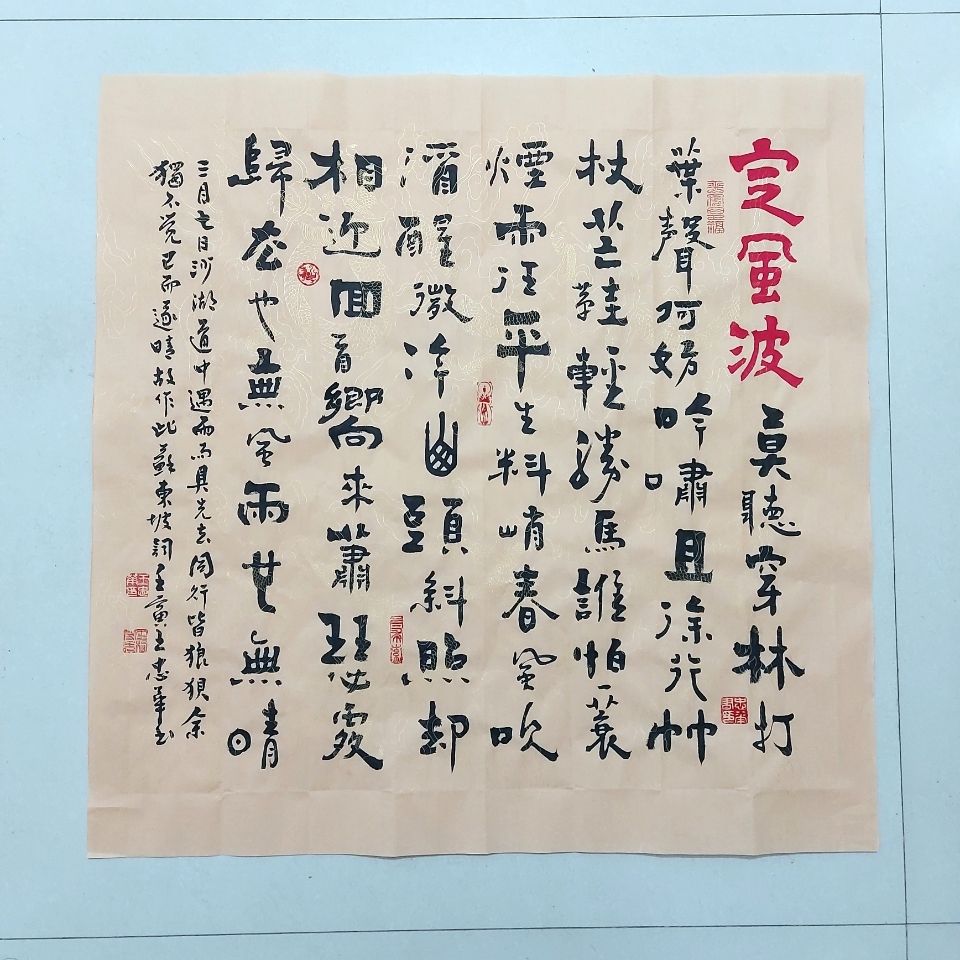 定風波 莫聽穿林打
葉聲何妨吟嘯且徐行竹
杖芒鞋輕勝馬誰怕一蓑
煙雨任平生料峭春風吹
酒醒微冷山頭斜照却
相迎回首嚮來蕭瑟處
歸去也無風雨也無晴
三月七日沙湖道中遇雨雨具先去同行皆狼狽余
獨不觉已而遂晴故作此蘇東坡詞壬寅王忠華书